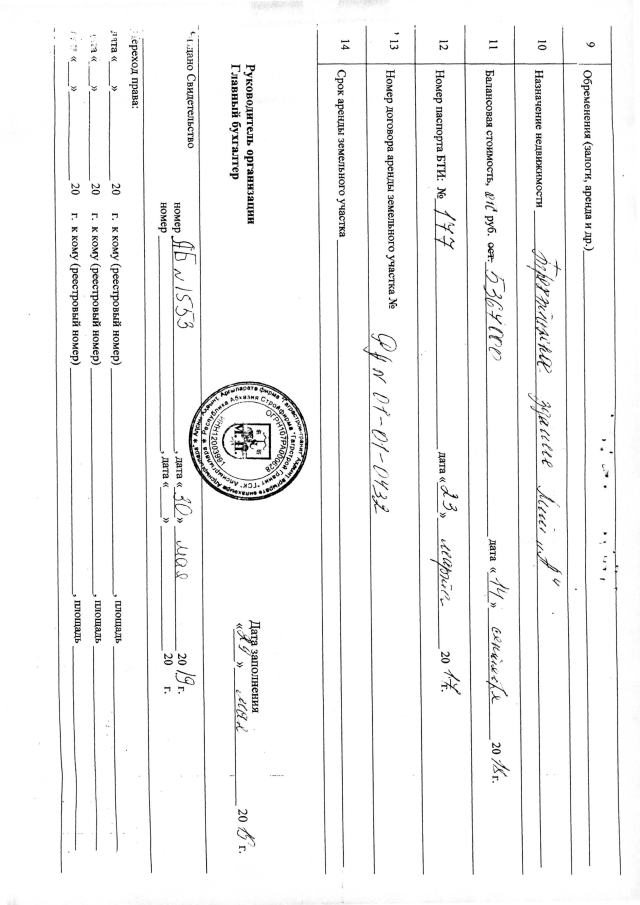 9 Обременения (залоги, аренда и др.)
10 Назначение недвижимости здание
11 Балансовая стоимость, руб. 5364000 дата « 14 » сентября 20 18 г.
12 Номер паспорта БТИ: № 177 дата « 23 » марта 20 17 г.
13 Номер договора аренды земельного участка № 01-01-0432
14 Срок аренды земельного участка
Руководитель организации
Главный бухгалтер
М.П.
Дата заполнения
мая 20 г.
Свидетельство номер ЯБ № 1553, дата « 30 » мая 20 19 г.
номер , дата « » 20 г.
Переход права:
дата « » 20 г. к кому (реестровый номер) , площадь
дата « » 20 г. к кому (реестровый номер) , площадь
« » 20 г. к кому (реестровый номер) , площадь